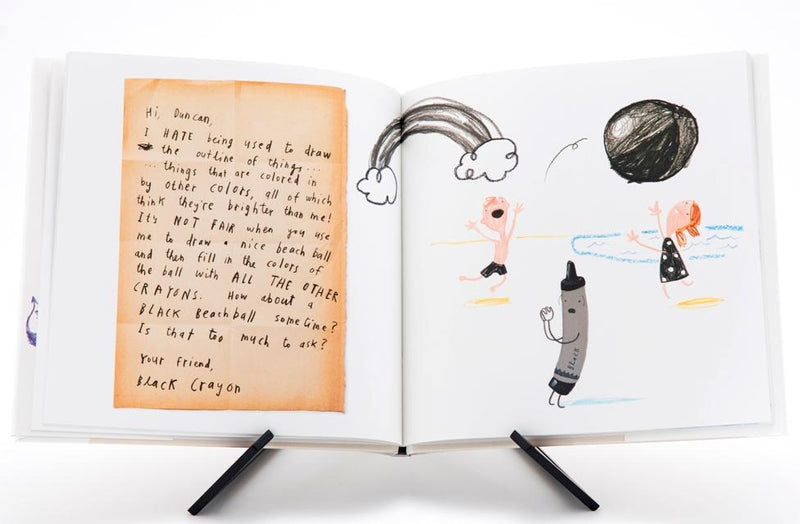 Hi, Duncan,
I HATE being used to draw
the outline of things...
... things that are colored in
by other colors, all of which
think they're brighter than me!
It's NOT FAIR when you use
me to draw a nice beach ball
and then fill in the colors of
the ball with ALL THE OTHER
CRAYONS. How about a
BLACK Beachball sometime?
Is that too much to ask?
Your friend,
Black Crayon
BLACK